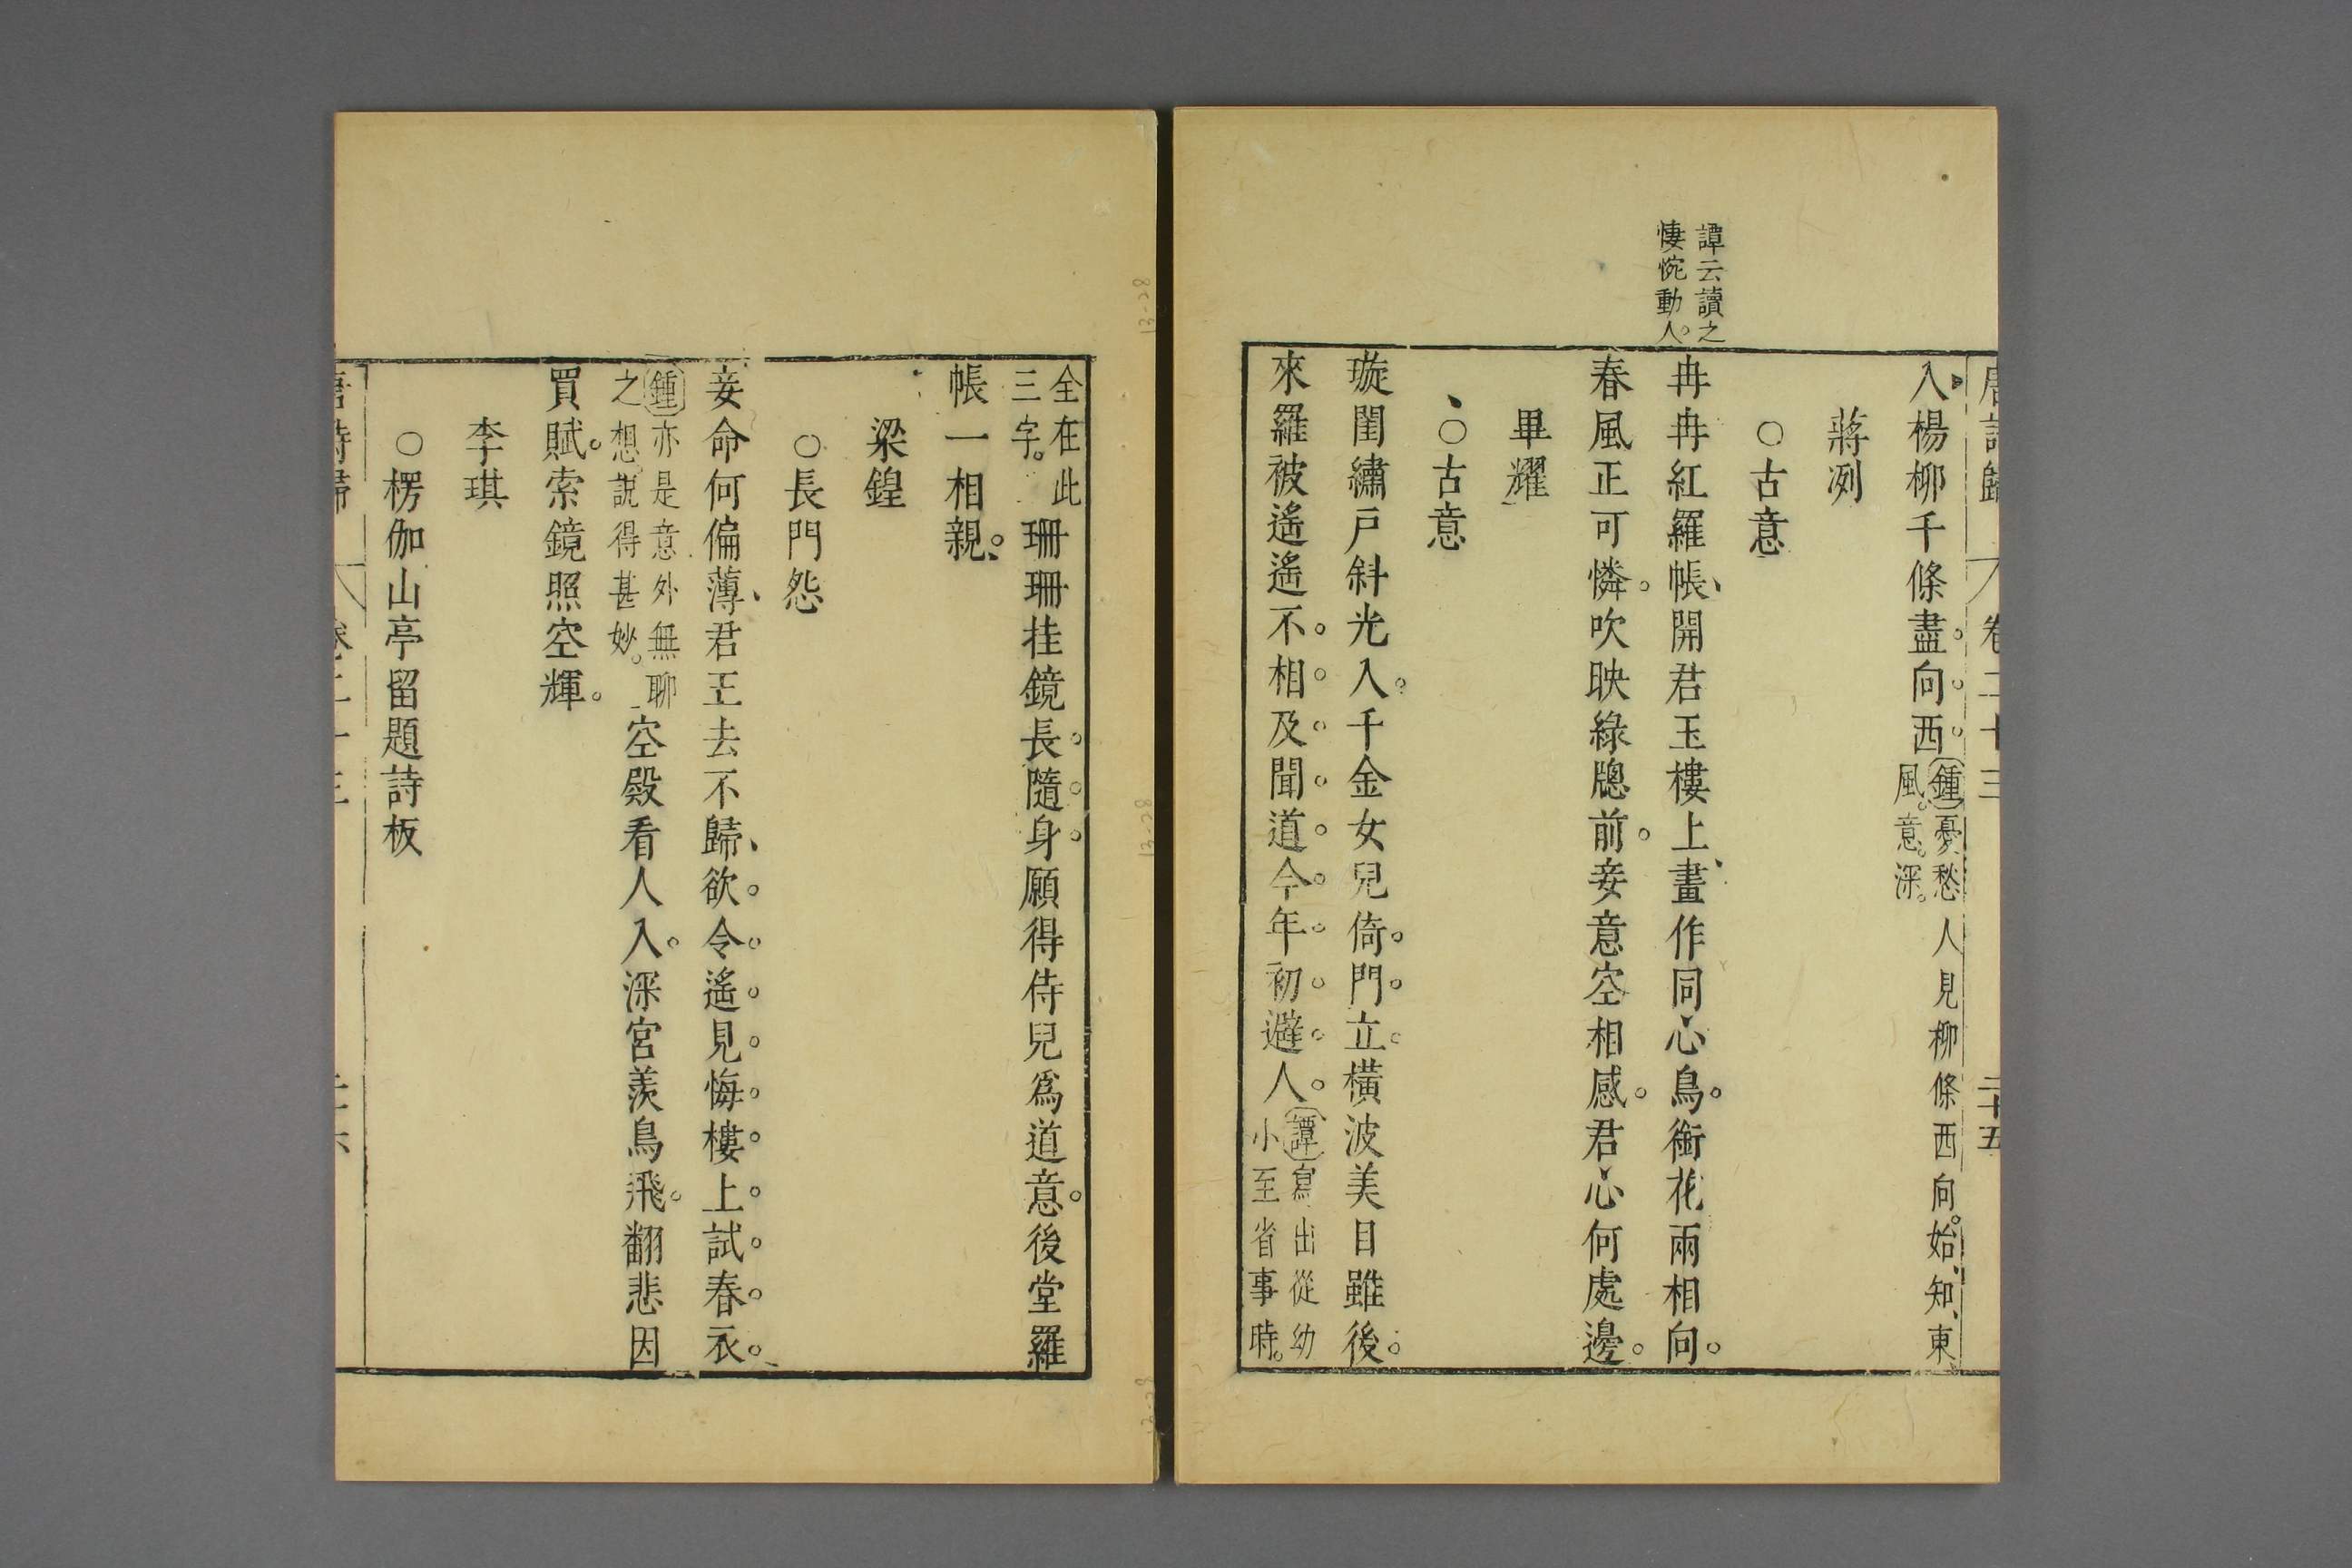 唐詩歸 卷二十三 二十五
入楊柳千條盡向西鍾憂愁人見柳條西向始知東
風意深
蔣冽
○古意
譚云讀之
悽惋動人
冉冉紅羅帳開君玉樓上畫作同心鳥銜花兩相向
春風正可憐吹映綠牕前妾意空相感君心何處邊
畢耀
○古意
璇閨繡戶斜光入千金女兒倚門立橫波美目雖後
來羅被遙遙不相及聞道今年初避人譚寫出從幼
小至省事時
全在此
三字珊珊挂鏡長隨身願得侍兒爲道意後堂羅
帳一相親
梁鍠
○長門怨
妾命何偏薄君王去不歸欲令遙見悔樓上試春衣
鍾亦是意外無聊
之想說得甚妙空殿看人入深宮羨鳥飛翻悲因
買賦索鏡照空輝
李琪
○楞伽山亭留題詩板